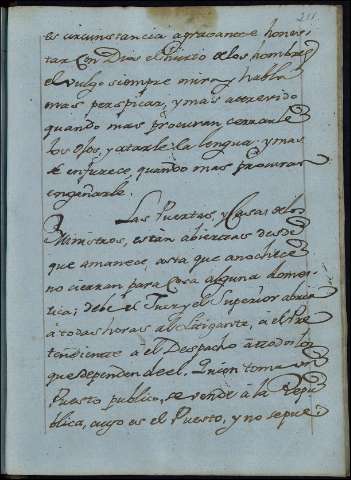 211.
es circunstancia agravante hones-
tar con Dios el hurto de los hombres
el vulgo siempre mira, y habla
mas perspicaz, y mas atrevido
quando mas procuran cerrarle
los ojos, y atarle la lengua, y mas
se enfurece quando mas procuran
engañarle.
Las Puertas, y Casas de los
Ministros, están abiertas desde
que amanece, asta que anochece
no cierran para cosa alguna domes-
tica; debe el Juez, y el Superior abrir
à todas horas al litigante, à el Pre
tendiente à el Despacho à todos los
que dependen de el. Quien toma un
Puesto publico, se vende à la Repu
blica, cuyo es el Puesto, y no se pue